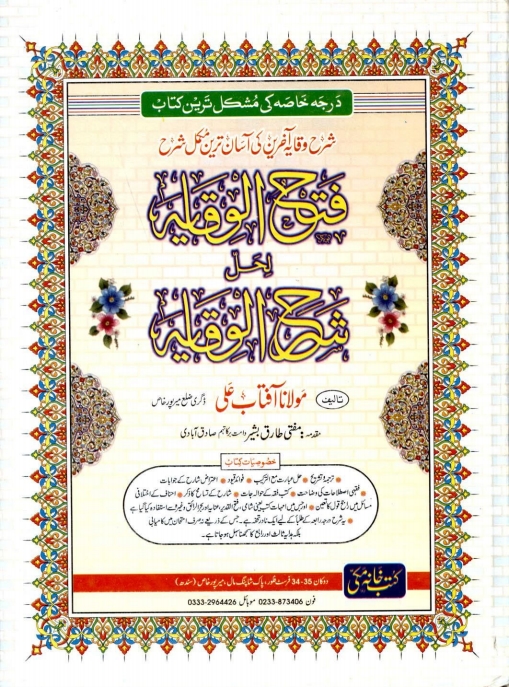 درجہ خاصہ کی مشکل ترین کتاب
شرح وقایہ آخرین کی آسان ترین مکمل شرح
فتح الوقایہ
لحل
شرح الوقایہ
تالیف مولانا آفتاب علی ڈگری ضلع میرپور خاص
مقدمہ: مفتی طارق بشیر دامت برکاتہم صادق آبادی
خصوصیات کتاب
ترجمہ و تشریح • حل عبارت مع الترکیب • فوائد قیود • اعتراض شارح کے جوابات
• فقہی اصطلاحات کی وضاحت • کتب فقہ کے حوالہ جات • شارح کے تسامح کا ذکر • احناف کے اختلافی
مسائل میں راجح قول کا تعین
• یہ شرح درجہ رابعہ کے طلبا کے لیے ایک نادر تحفہ ہے۔ جس کے ذریعے نہ صرف امتحان میں کامیابی
بلکہ ہدایہ ثالث اور رابع کا سمجھنا سہل ہو جاتا ہے۔
کتب خانہ مکی
دوکان 35-34 فرسٹ فلور، پاک شاپنگ مال، میرپور خاص (سندھ)
فون 0233-873406 موبائل 0333-2964426